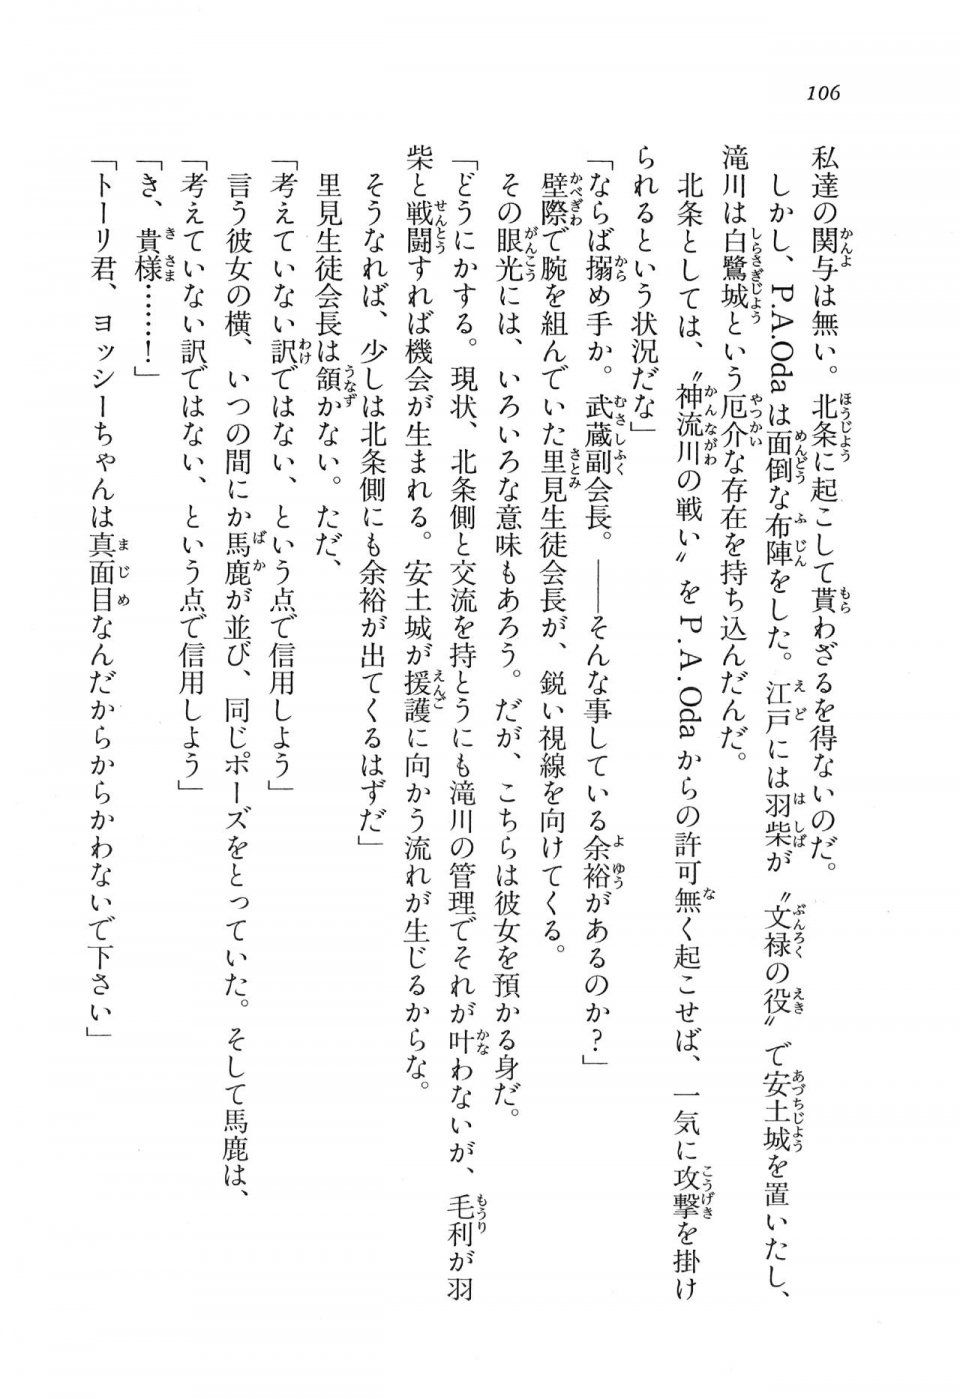 106
私達の関与は無い。北条に起こして貰わざるを得ないのだ。
しかし、P.A.Odaは面倒な布陣をした。江戸には羽柴が〝文禄の役〟で安土城を置いたし、
滝川は白鷺城という厄介な存在を持ち込んだんだ。
北条としては、〝神流川の戦い〟をP.A.Odaからの許可無く起こせば、一気に攻撃を掛け
られるという状況だな」
「ならば搦め手か。武蔵副会長。――そんな事している余裕があるのか?」
壁際で腕を組んでいた里見生徒会長が、鋭い視線を向けてくる。
その眼光には、いろいろな意味もあろう。だが、こちらは彼女を預かる身だ。
「どうにかする。現状、北条側と交流を持とうにも滝川の管理でそれが叶わないが、毛利が羽
柴と戦闘すれば機会が生まれる。安土城が援護に向かう流れが生じるからな。
そうなれば、少しは北条側にも余裕が出てくるはずだ」
里見生徒会長は頷かない。ただ、
「考えていない訳ではない、という点で信用しよう」
言う彼女の横、いつの間にか馬鹿が並び、同じポーズをとっていた。そして馬鹿は、
「考えていない訳ではない、という点で信用しよう」
「き、貴様……!」
「トーリ君、ヨッシーちゃんは真面目なんだからからかわないで下さい」